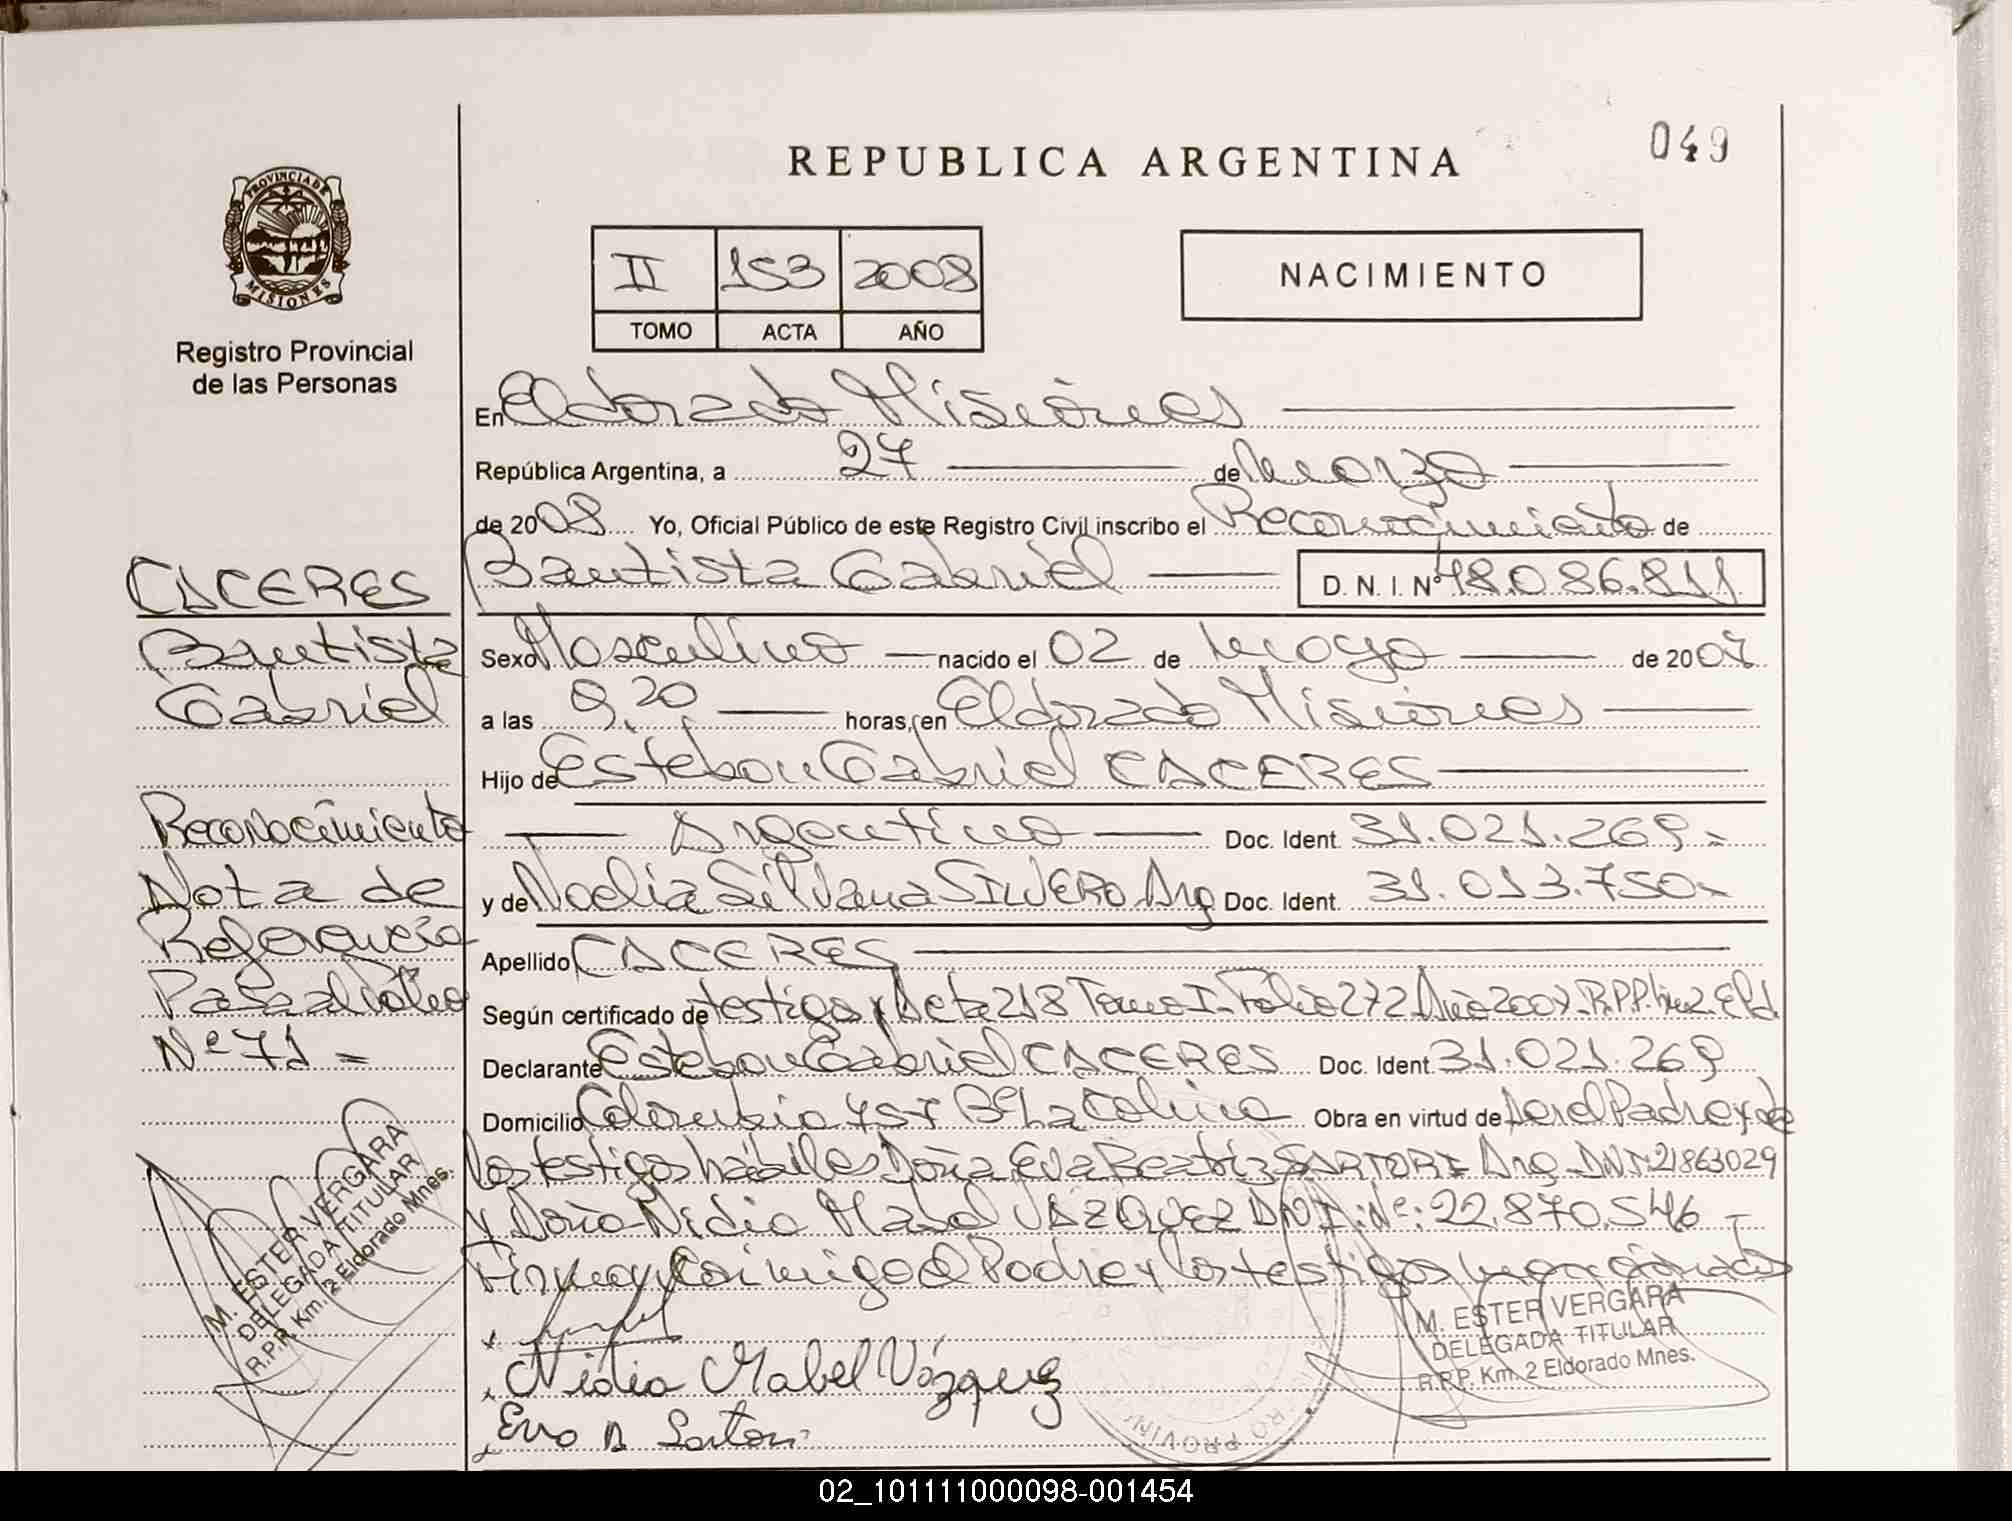 049
REPUBLICA ARGENTINA
PROVINCIA DE
MISIONES
Registro Provincial
de las Personas
II 153 2008
TOMO ACTA AÑO
NACIMIENTO
En Eldorado Misiones
República Argentina, a 27 de Marzo
de 2008 Yo, Oficial Público de este Registro Civil inscribo el Reconocimiento de
Bautista Gabriel D. N. I. Nº 48.086.811
Sexo Masculino nacido el 02 de Mayo de 2007
a las 9,20 horas, en Eldorado Misiones
Hijo de Esteban Gabriel CACERES
Argentino Doc. Ident. 31.021.269.=
y de Noelia Silvana SILVERO Arg Doc. Ident. 31.013.750.=
Apellido CACERES
Según certificado de testigo y Acta 218 Tomo I Folio 272 Año 2007. R.P.P. km2. Eld.
Declarante Esteban Gabriel CACERES Doc. Ident. 31.021.269
Domicilio Colombia 457 Bº La Colina Obra en virtud de Ser el Padre y de
los testigos hábiles Doña Eva Beatriz SARTORI Arg. DNI: 21863029
y Doña Nidia Mabel VAZQUEZ DNI. Nº: 22.870.546
Firman conmigo el Padre y los testigos mencionados
Nidia Mabel Vázquez
Eva B Sartori
M. ESTER VERGARA
DELEGADA TITULAR
R.P.P. Km. 2 Eldorado Mnes.
CACERES
Bautista
Gabriel
Reconocimiento
Nota de
Referencia
Pasa al Folio
Nº 71 =
M. ESTER VERGARA
DELEGADA TITULAR
R.P.P. Km. 2 Eldorado Mnes.
02_101111000098-001454